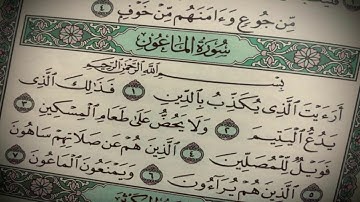 مِّن جُوعٍ وَءَامَنَهُم مِّنْ خَوْفٍ ٤
سُورَةُ المَاعُونِ
بِسْمِ ٱللَّهِ ٱلرَّحْمَٰنِ ٱلرَّحِيمِ
أَرَءَيْتَ ٱلَّذِى يُكَذِّبُ بِٱلدِّينِ ١ فَذَٰلِكَ ٱلَّذِى
يَدُعُّ ٱلْيَتِيمَ ٢ وَلَا يَحُضُّ عَلَىٰ طَعَامِ ٱلْمِسْكِينِ ٣
فَوَيْلٌ لِّلْمُصَلِّينَ ٤ ٱلَّذِينَ هُمْ عَن صَلَاتِهِمْ سَاهُونَ ٥
ٱلَّذِينَ هُمْ يُرَآءُونَ ٦ وَيَمْنَعُونَ ٱلْمَاعُونَ ٧